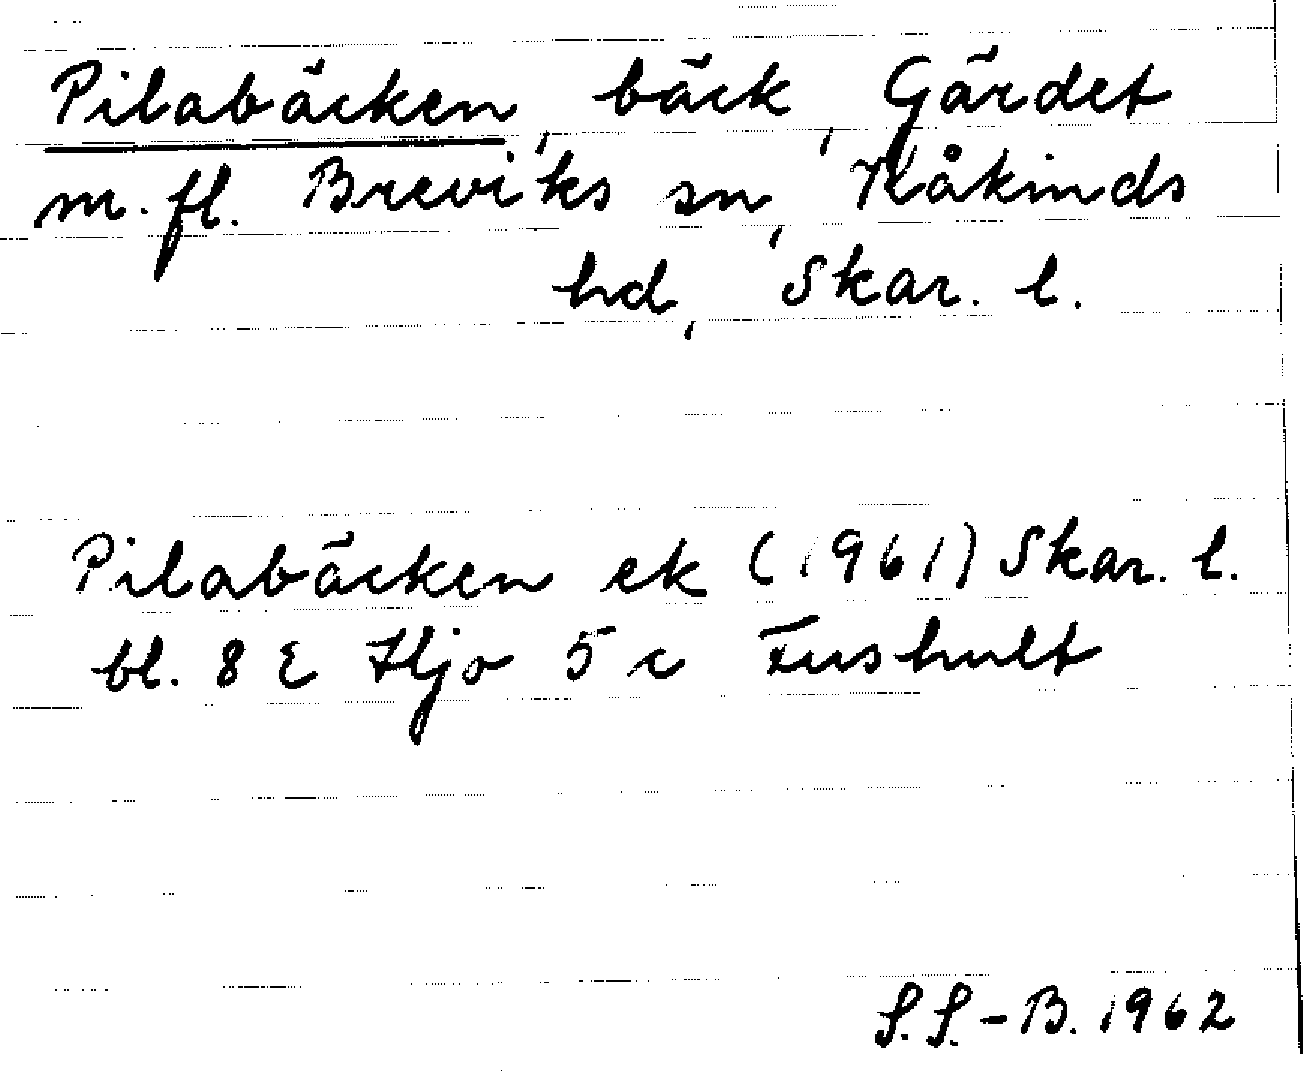 Pilabäcken, bäck, Gärdet
m. fl. Breviks sn, Kåkinds
hd, Skar. l.
Pilabäcken ek (1961) Skar. l.
bl. 8 E Hjo 5 c Fushult
S.S.-B. 1962